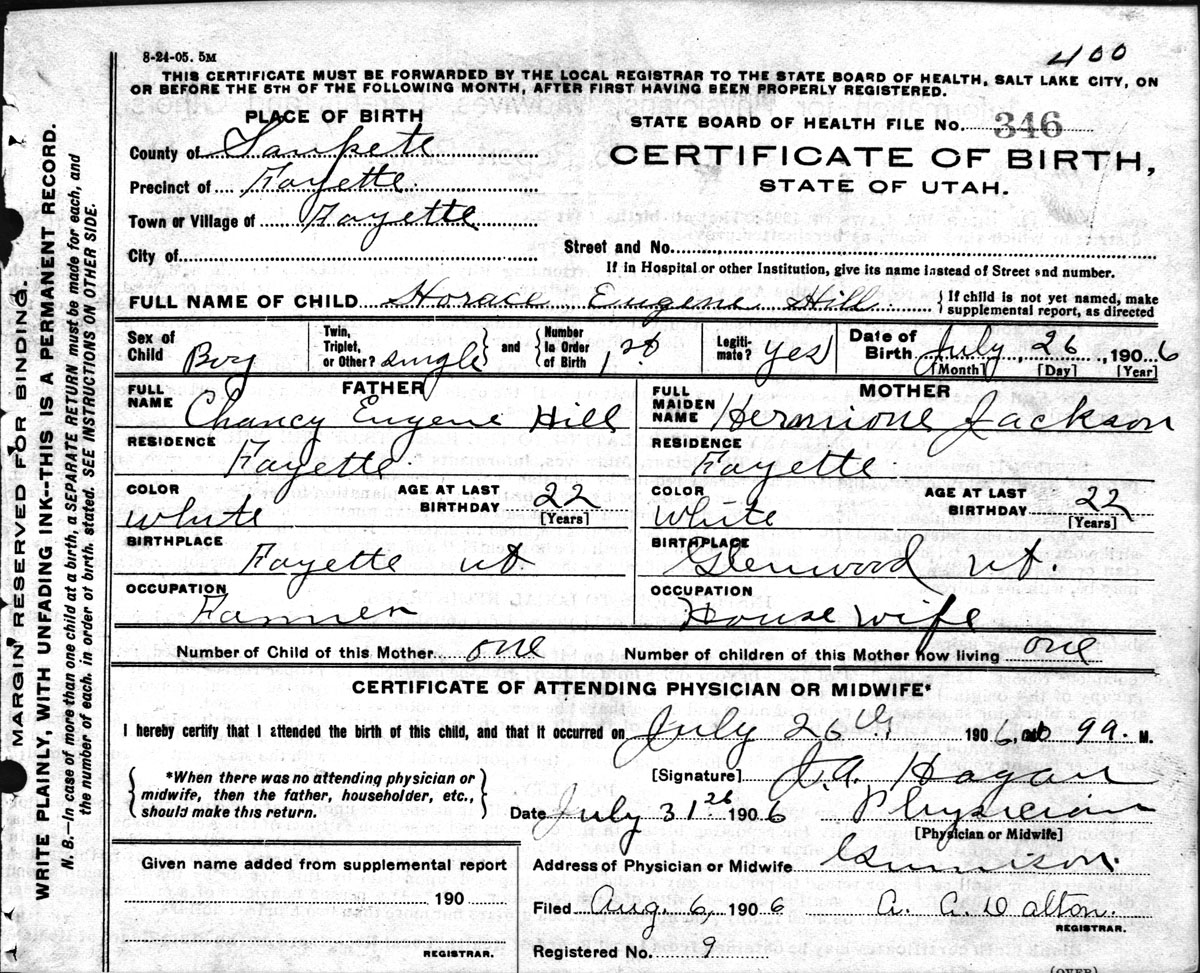 8-24-05. 5M
400
THIS CERTIFICATE MUST BE FORWARDED BY THE LOCAL REGISTRAR TO THE STATE BOARD OF HEALTH, SALT LAKE CITY, ON
OR BEFORE THE 5TH OF THE FOLLOWING MONTH, AFTER FIRST HAVING BEEN PROPERLY REGISTERED.
PLACE OF BIRTH
STATE BOARD OF HEALTH FILE No. 346
County of Sanpete
CERTIFICATE OF BIRTH,
Precinct of Fayette
STATE OF UTAH.
Town or Village of Fayette
City of
Street and No.
If in Hospital or other Institution, give its name instead of Street and number.
FULL NAME OF CHILD Horace Eugene Hill { If child is not yet named, make supplemental report, as directed
Sex of Child Boy Twin, Triplet, or Other? single } and { Number in Order of Birth 1st Legiti-mate? yes Date of Birth July, 26, 1906
[Month] [Day] [Year]
FATHER
FULL NAME Chancy Eugene Hill
RESIDENCE
Fayette
COLOR White AGE AT LAST BIRTHDAY 22
[Years]
BIRTHPLACE
Fayette Ut.
OCCUPATION
Farmer
MOTHER
FULL MAIDEN NAME Hermione Jackson
RESIDENCE
Fayette
COLOR White AGE AT LAST BIRTHDAY 22
[Years]
BIRTHPLACE
Glenwood Ut.
OCCUPATION
House wife
Number of Child of this Mother one Number of children of this Mother now living one
CERTIFICATE OF ATTENDING PHYSICIAN OR MIDWIFE*
I hereby certify that I attended the birth of this child, and that it occurred on July 26th 1906, M.
{ *When there was no attending physician or
midwife, then the father, householder, etc.,
should make this return. }
[Signature] J.A. Hagan
Date July 31 26 1906 Physician
[Physician or Midwife]
Given name added from supplemental report
190
REGISTRAR.
Address of Physician or Midwife Gunnison.
Filed Aug. 6, 1906
REGISTRAR.
Registered No. 9
(OVER)
MARGIN RESERVED FOR BINDING.
WRITE PLAINLY, WITH UNFADING INK--THIS IS A PERMANENT RECORD.
N. B.—In case of more than one child at a birth, a SEPARATE RETURN must be made for each, and
the number of each, in order of birth, stated. SEE INSTRUCTIONS ON OTHER SIDE.